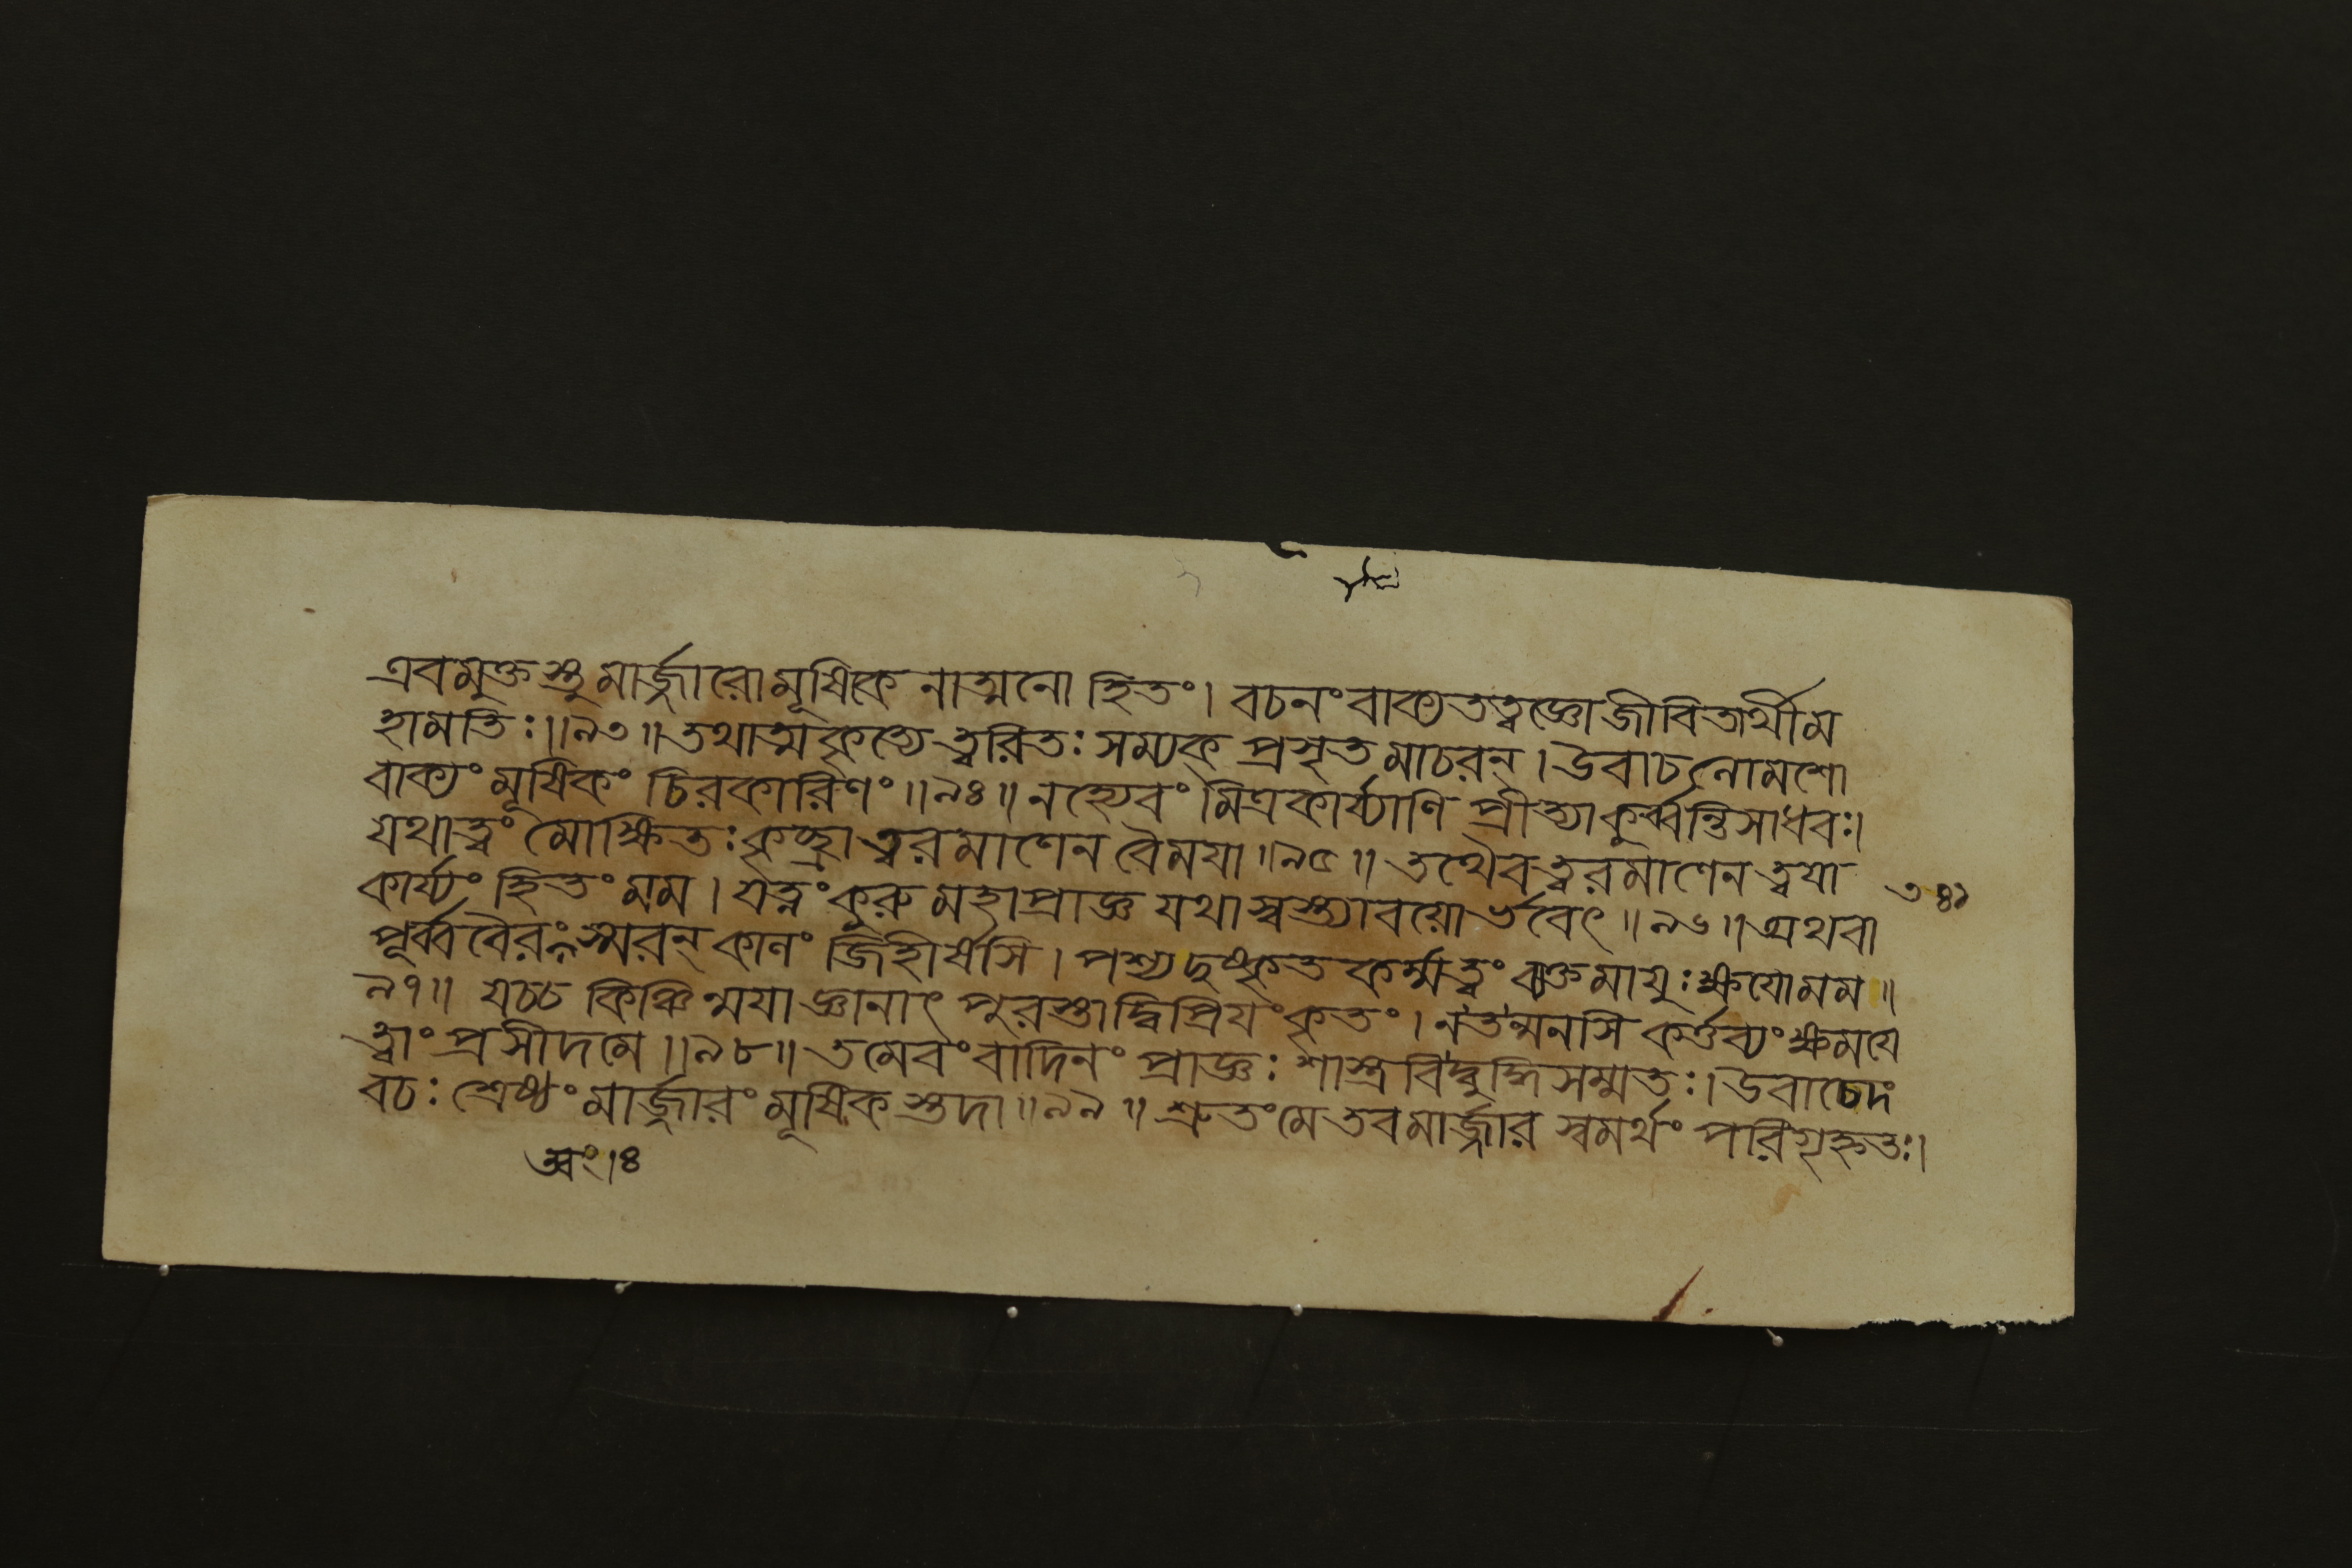 এবমুক্তস্তু মার্জ্জারো মূষিকেনাত্মনো হিতং। বচনং বাক্যতত্ত্বজ্ঞো জীবিতার্থী ম
হামতিঃ॥৯৩॥ তথাত্মকৃত্যে ত্বরিতঃ সম্যক্ প্রসৃতমাচরন্। উবাচ লোমশো
বাক্যং মূষিকং চিরকারিণং॥৯৪॥ নহ্যেবং মিত্রকার্য্যাণি প্রীত্যা কুর্ব্বন্তি সাধবঃ।
যথা ত্বং মোক্ষিতঃ কৃচ্ছ্রাত্ত্বরমাণেন বৈ ময়া॥৯৫॥ তথৈব ত্বরমাণেন ত্বয়া
কার্য্যং হিতং মম। যত্নং কুরু মহাপ্রাজ্ঞ যথা স্বস্ত্যাবয়োর্ভবেৎ॥৯৬॥ অথবা
পূর্ব্ববৈরং স্মরন্ কালং জিহীর্ষসি। পশ্য দুষ্কৃতকর্ম্মত্বং ব্যক্তমায়ুঃক্ষয়ো মম॥
৯৭॥ যচ্চ কিঞ্চিন্ময়াজ্ঞানাৎ পুরস্তাদ্বিপ্রিয়ং কৃতং। ন তন্মনসি কর্ত্তব্যং ক্ষময়ে
ত্বাং প্রসীদ মে॥৯৮॥ তমেবংবাদিনং প্রাজ্ঞঃ শাস্ত্রবিদ্বুদ্ধিসম্মতঃ। উবাচেদং
বচঃ শ্রেষ্ঠং মার্জ্জারং মূষিকস্তদা॥৯৯॥ শ্রুতং মে তব মার্জ্জার স্বমর্থং পরিগৃহ্নতঃ।